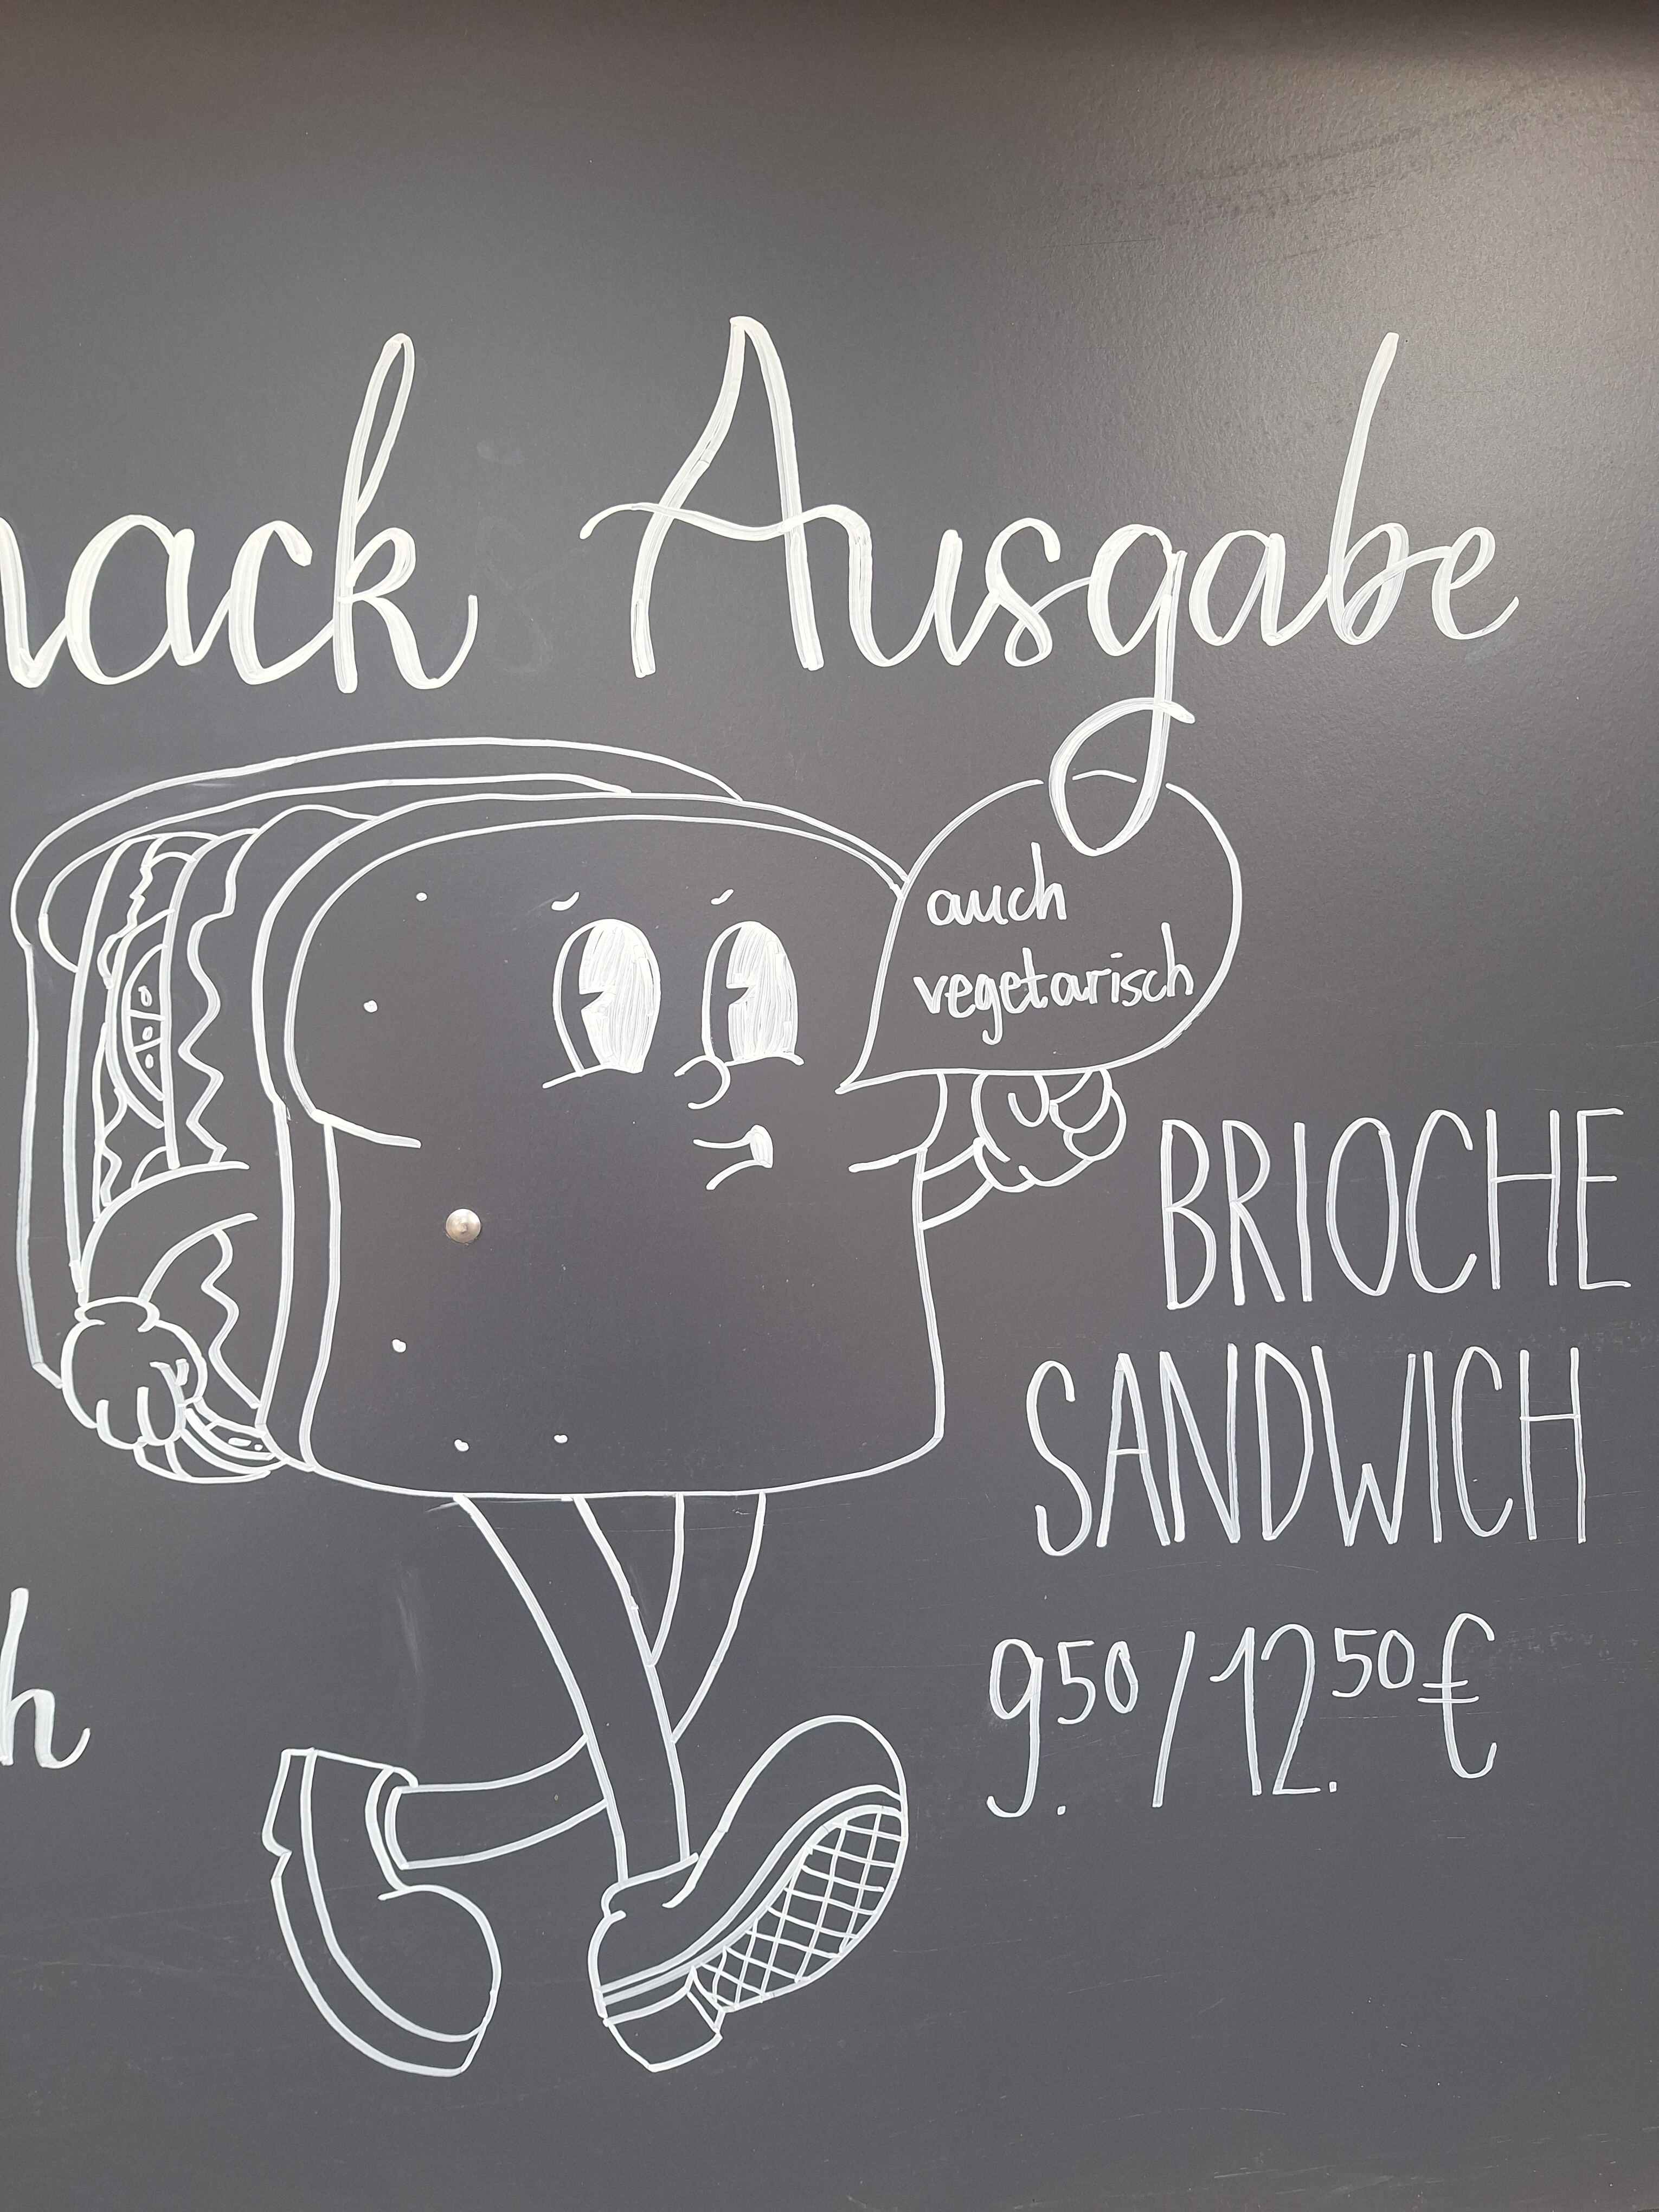 nack Ausgabe
auch
vegetarisch
BRIOCHE
SANDWICH
9.50/12.50€
h